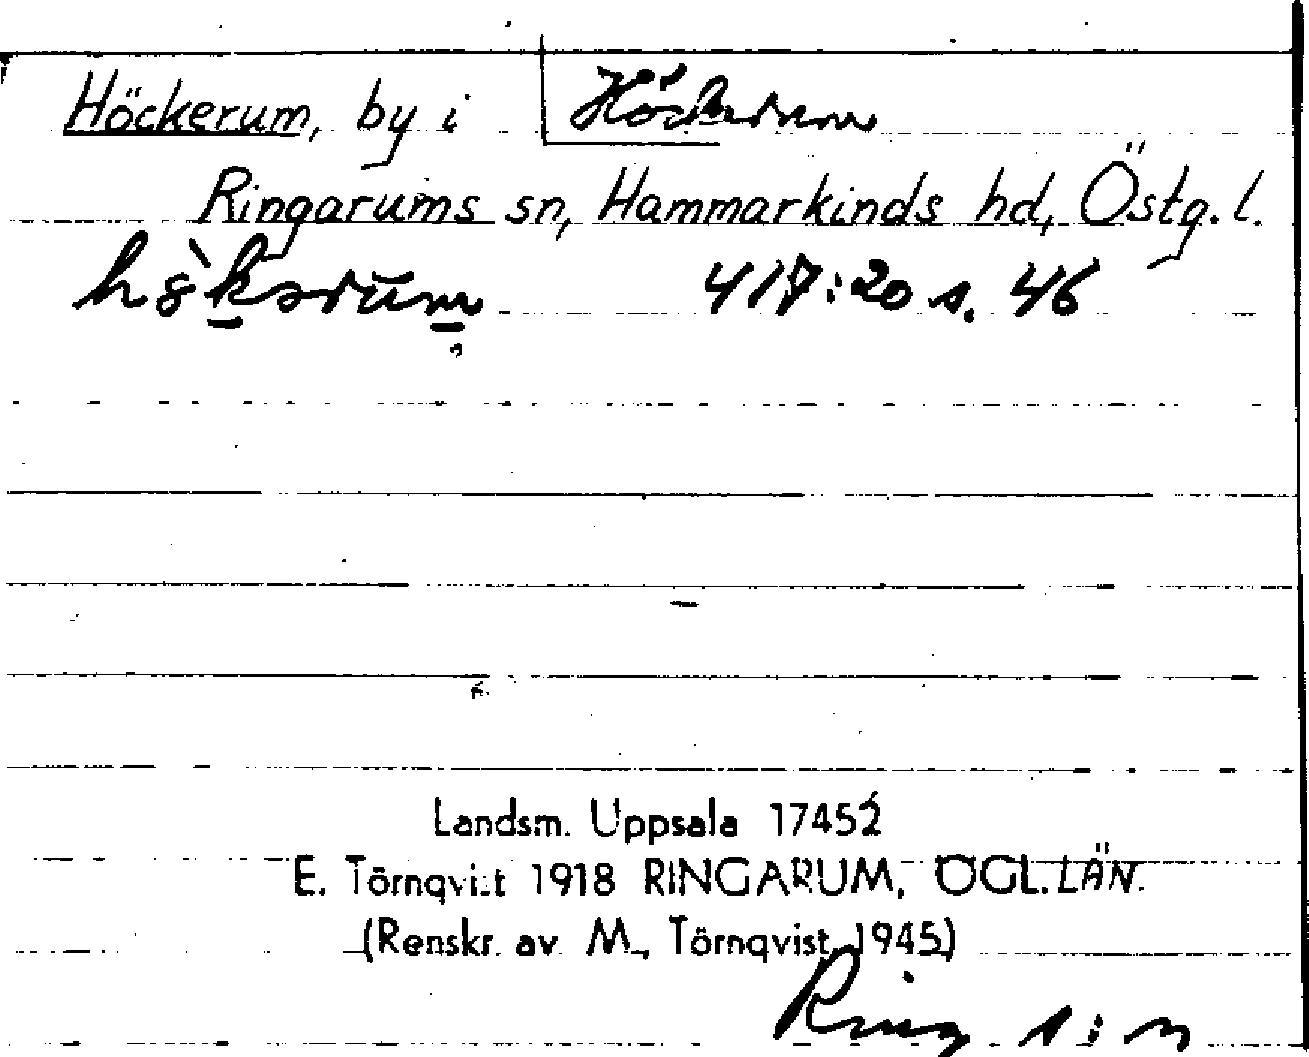 Höckerum, by i Höckerum
Ringarums sn, Hammarkinds hd, Östg. l.
417:20 s. 46
Landsm. Uppsala 17452
E. Törnqvist 1918 RINGARUM, ÖGL. LÄN.
(Renskr. av M. Törnqvist 1945)
Ring